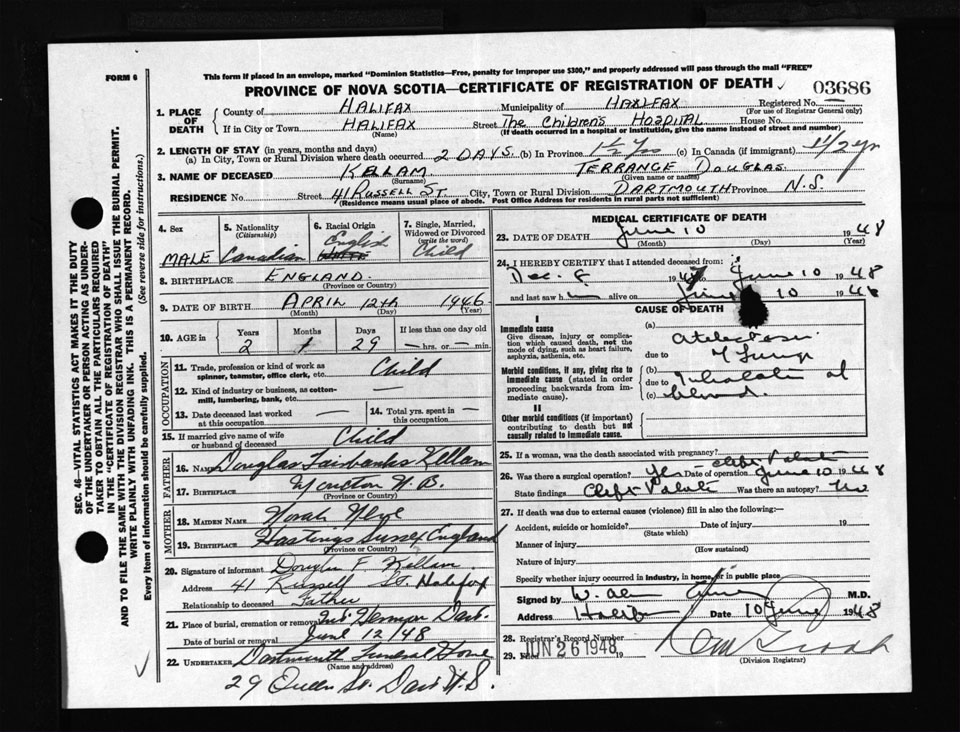 FORM 6
This form if placed in an envelope, marked "Dominion Statistics—Free, penalty for improper use $300," and properly addressed will pass through the mail "FREE"
PROVINCE OF NOVA SCOTIA—CERTIFICATE OF REGISTRATION OF DEATH
03686
1. PLACE OF DEATH
County of HALIFAX Municipality of HALIFAX Registered No.
(For use of Registrar General only)
If in City or Town HALIFAX Street The Children's HOSPITAL House No.
(Name) (If death occurred in a hospital or institution, give the name instead of street and number)
2. LENGTH OF STAY (in years, months and days)
(a) In City, Town or Rural Division where death occurred 2 DAYS. (b) In Province 1 1/2 Yrs (c) In Canada (if immigrant) 1 1/2 yr
3. NAME OF DECEASED KELLAM TERRANCE DOUGLAS
(Surname) (Given name or names)
RESIDENCE No. Street 41 RUSSELL ST. City, Town or Rural Division DARTMOUTH Province N.S.
(Residence means usual place of abode. Post Office Address for residents in rural parts not sufficient)
4. Sex
MALE
5. Nationality
(Citizenship)
Canadian
6. Racial Origin
English
7. Single, Married, Widowed or Divorced
(write the word)
Child
8. BIRTHPLACE ENGLAND.
(Province or Country)
9. DATE OF BIRTH APRIL 12th 1946
(Month) (Day) (Year)
10. AGE in
Years Months Days If less than one day old
2 1 29 — hrs. or — min.
OCCUPATION
11. Trade, profession or kind of work as spinner, teamster, office clerk, etc. Child
12. Kind of industry or business, as cotton-mill, lumbering, bank, etc. —
13. Date deceased last worked at this occupation —
14. Total yrs. spent in this occupation —
15. If married give name of wife or husband of deceased Child
FATHER
16. NAME Douglas Fairbanks Kellam
17. BIRTHPLACE Moncton N.B.
(Province or Country)
MOTHER
18. MAIDEN NAME Norah
19. BIRTHPLACE Hastings Sussex England
(Province or Country)
20. Signature of informant Douglas F. Kellam.
Address 41 Russell St. Halifax
Relationship to deceased Father
21. Place of burial, cremation or removal Dart.
Date of burial or removal June 12/48
22. UNDERTAKER Dartmouth Funeral Home
(Name and address)
29 Queen St. Dart N.S.
MEDICAL CERTIFICATE OF DEATH
23. DATE OF DEATH June 10 1948
(Month) (Day) (Year)
24. I HEREBY CERTIFY that I attended deceased from:
Dec. 8 1947 June 10 1948
and last saw h im alive on June 10 1948
CAUSE OF DEATH
I
Immediate cause
Give disease, injury or complication which caused death, not the mode of dying, such as heart failure, asphyxia, asthenia, etc.
(a) Atelectasis
due to of Lungs
Morbid conditions, if any, giving rise to immediate cause (stated in order proceeding backwards from immediate cause).
(b)
due to Inhalation of
(c) blood.
II
Other morbid conditions (if important) contributing to death but not causally related to immediate cause.
25. If a woman, was the death associated with pregnancy?
26. Was there a surgical operation? Yes - Cleft Palate Date of operation June 10 1948
State findings Cleft Palate Was there an autopsy? No
27. If death was due to external causes (violence) fill in also the following:—
Accident, suicide or homicide? Date of injury 19
(State which)
Manner of injury
(How sustained)
Nature of injury
Specify whether injury occurred in industry, in home, or in public place
Signed by W. M.D.
Address Halifax Date 10 June 1948
28. Registrar's Record Number
29. Filed JUN 26 1948 19
(Division Registrar)
SEC. 46—VITAL STATISTICS ACT MAKES IT THE DUTY OF THE UNDERTAKER OR PERSON ACTING AS UNDERTAKER TO OBTAIN ALL THE PARTICULARS REQUIRED IN THE "CERTIFICATE OF REGISTRATION OF DEATH"
AND TO FILE THE SAME WITH THE DIVISION REGISTRAR WHO SHALL ISSUE THE BURIAL PERMIT.
WRITE PLAINLY WITH UNFADING INK. THIS IS A PERMANENT RECORD.
Every item of information should be carefully supplied. (See reverse side for instructions.)